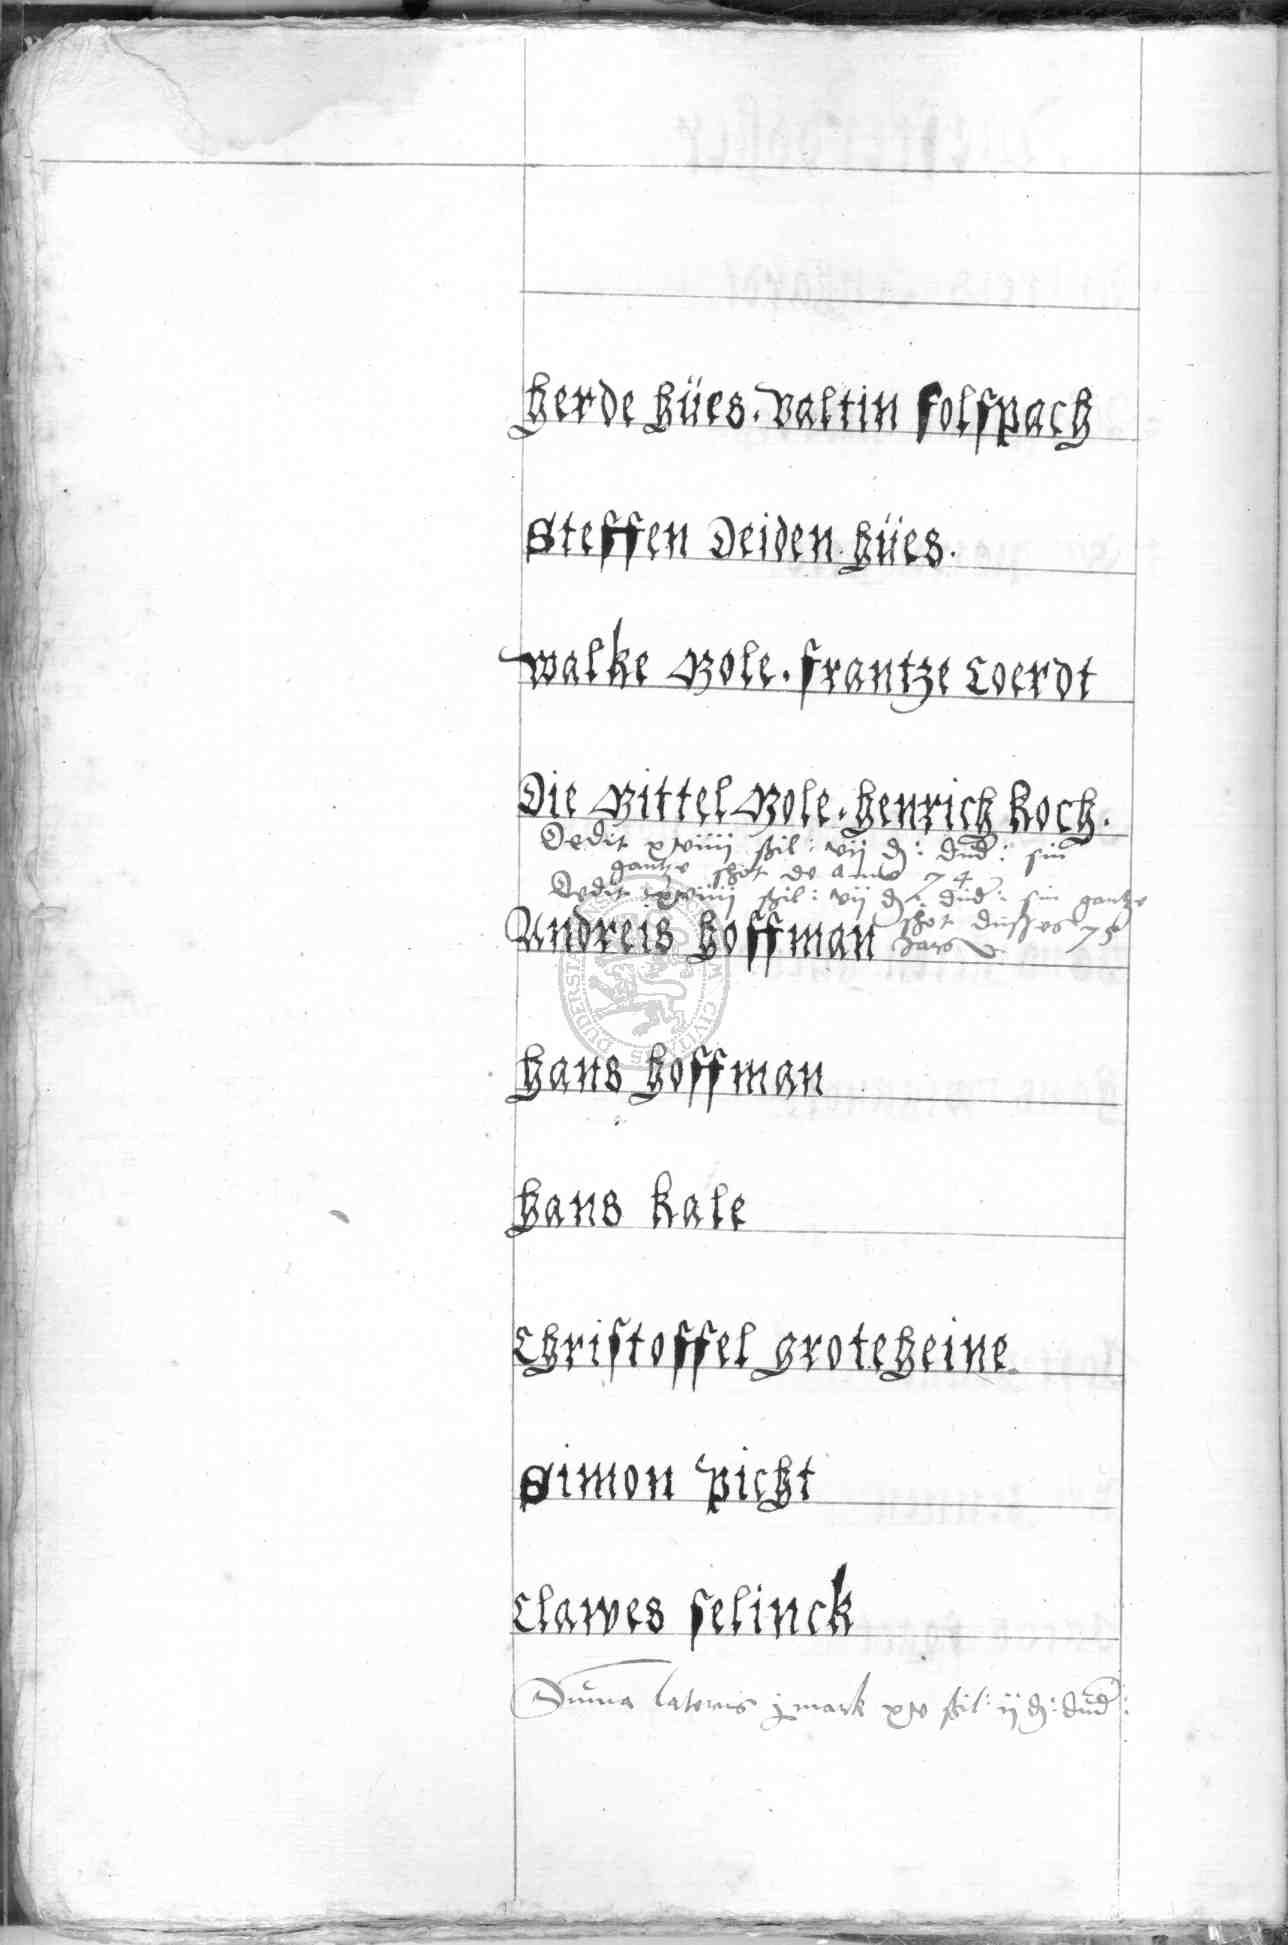 Herde Hües. Valtin Folspach
Steffen Deiden Hües.
Walke Mole. Frantze Coerdt
Die Mittel Mole. Henrich Koch.
Dedit xviiii ßil: vii d: dud: sin
gantze schot de anno 74
Dedit xviiii ßil: vii d: dud: sin gantze
schot disses 75
Jars
Andreis Hoffman
Hans Hoffman
Hans Kale
Christoffel Groteheine
Simon Picht
Clawes Selinck
Summa lateris j mark xv ßil: ij d: dud: